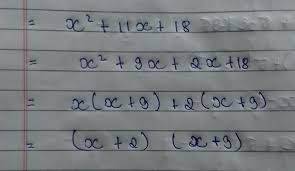 = x² + 11x + 18
= x² + 9x + 2x + 18
= x(x+9) + 2(x+9)
= (x+2) (x+9)